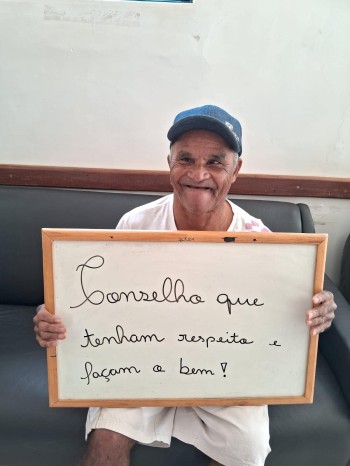 Conselho que
tenham respeito e
façam o bem!